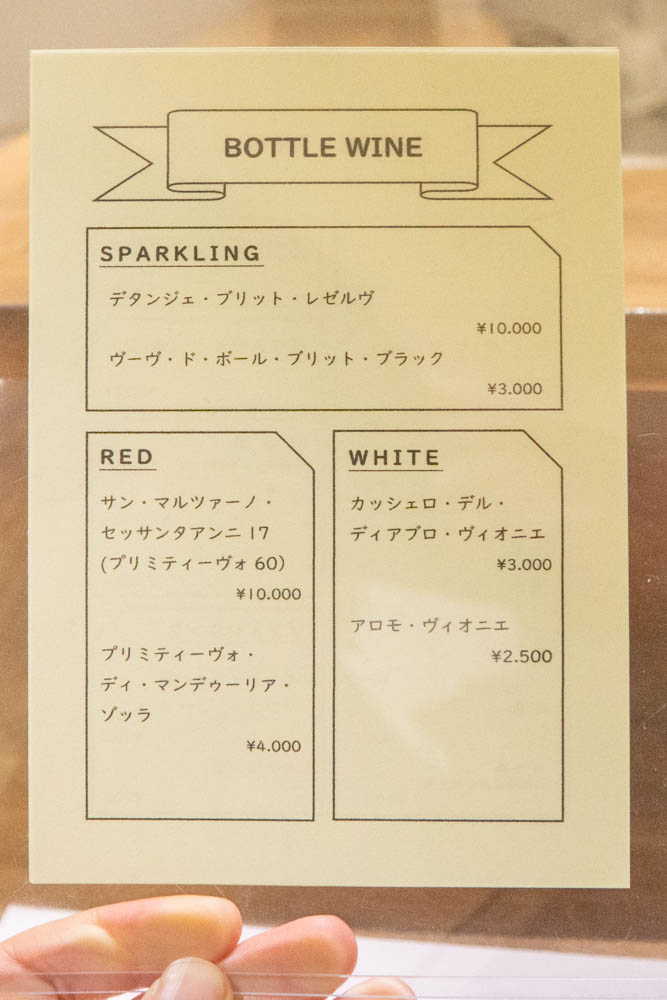 BOTTLE WINE
SPARKLING
デタンジェ・ブリット・レゼルヴ
¥10.000
ヴーヴ・ド・ボール・ブリット・ブラック
¥3.000
RED
サン・マルツァーノ・
セッサンタアンニ 17
(プリミティーヴォ 60)
¥10.000
プリミティーヴォ・
ディ・マンドゥーリア・
ゾッラ
¥4.000
WHITE
カッシェロ・デル・
ディアブロ・ヴィオニエ
¥3.000
アロモ・ヴィオニエ
¥2.500